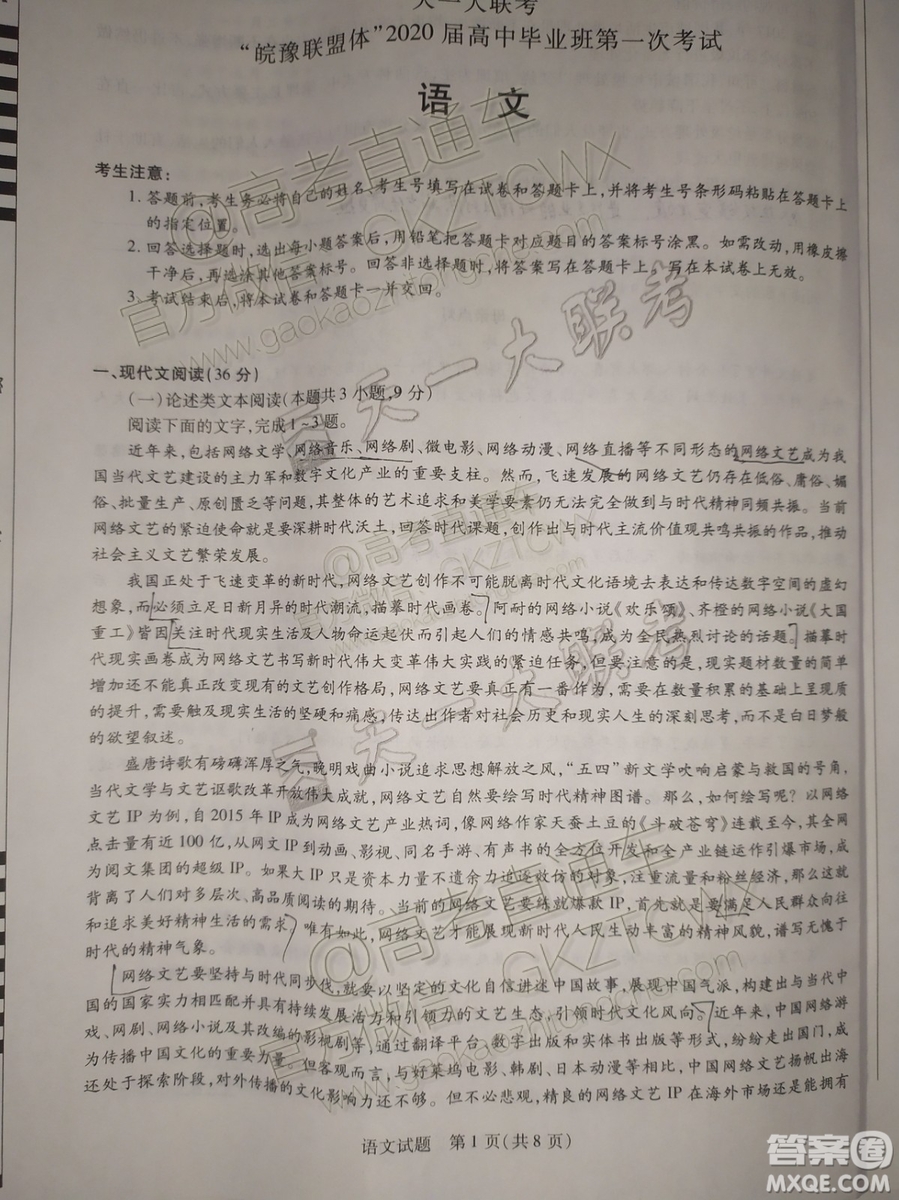 天一大联考
“皖豫联盟体”2020届高中毕业班第一次考试
语 文
考生注意：
1. 答题前，考生务必将自己的姓名、考生号填写在试卷和答题卡上，并将考生号条形码粘贴在答题卡上
的指定位置。
2. 回答选择题时，选出每小题答案后，用铅笔把答题卡对应题目的答案标号涂黑。如需改动，用橡皮擦
干净后，再选涂其他答案标号。回答非选择题时，将答案写在答题卡上。写在本试卷上无效。
3. 考试结束后，将本试卷和答题卡一并交回。
一、现代文阅读（36分）
（一）论述类文本阅读（本题共3小题，9分）
阅读下面的文字，完成1~3题。
近年来，包括网络文学、网络音乐、网络剧、微电影、网络动漫、网络直播等不同形态的网络文艺成为我
国当代文艺建设的主力军和数字文化产业的重要支柱。然而，飞速发展的网络文艺仍存在低俗、庸俗、媚
俗、批量生产、原创匮乏等问题，其整体的艺术追求和美学要素仍无法完全做到与时代精神同频共振。当前
网络文艺的紧迫使命就是要深耕时代沃土，回答时代课题，创作出与时代主流价值观共鸣共振的作品，推动
社会主义文艺繁荣发展。
我国正处于飞速变革的新时代，网络文艺创作不可能脱离时代文化语境去表达和传达数字空间的虚幻
想象，而必须立足日新月异的时代潮流，描摹时代画卷。阿耐的网络小说《欢乐颂》、齐橙的网络小说《大国
重工》皆因关注时代现实生活及人物命运起伏而引起人们的情感共鸣，成为全民热烈讨论的话题。描摹时
代现实画卷成为网络文艺书写新时代伟大变革伟大实践的紧迫任务，但要注意的是，现实题材数量的简单
增加还不能真正改变现有的文艺创作格局，网络文艺要真正有一番作为，需要在数量积累的基础上呈现质
的提升，需要触及现实生活的坚硬和痛感，传达出作者对社会历史和现实人生的深刻思考，而不是白日梦般
的欲望叙述。
盛唐诗歌有磅礴浑厚之气，晚明戏曲小说追求思想解放之风，“五四”新文学吹响启蒙与救国的号角，
当代文学与文艺讴歌改革开放伟大成就，网络文艺自然要绘写时代精神图谱。那么，如何绘写呢？以网络
文艺IP为例，自2015年IP成为网络文艺产业热词，像网络作家天蚕土豆的《斗破苍穹》连载至今，其全网
点击量有近100亿，从网文IP到动画、影视、同名手游、有声书的全方位开发和全产业链运作引爆市场，成
为阅文集团的超级IP。如果大IP只是资本力量不遗余力进逐效益的标签，注重流量和粉丝经济，那么这就
背离了人们对多层次、高品质阅读的期待。当前的网络文艺要练就爆款IP，首先就是要满足人民群众向往
和追求美好精神生活的需求，唯有如此，网络文艺才能展现新时代人民生动丰富的精神风貌，谱写无愧于
时代的精神气象。
网络文艺要坚持与时代同步伐，就要以坚定的文化自信讲述中国故事，展现中国气派，构建出与当代中
国的国家实力相匹配并具有持续发展活力和引领力的文艺生态，引领时代文化风向。近年来，中国网络游
戏、网剧、网络小说及其改编的影视剧等，通过翻译平台、数字出版和实体书出版等形式，纷纷走出国门，成
为传播中国文化的重要力量。但客观而言，与好莱坞电影、韩剧、日本动漫等相比，中国网络文艺扬帆出海
还处于探索阶段，对外传播的文化影响力还不够。但不必悲观，精良的网络文艺IP在海外市场还是能拥有
语文试题　第1页（共8页）
@高考直通车
官方微信：GKZTCWX
www.gaokaozhitongche.com
天一大联考
答案圈
MXQE.COM